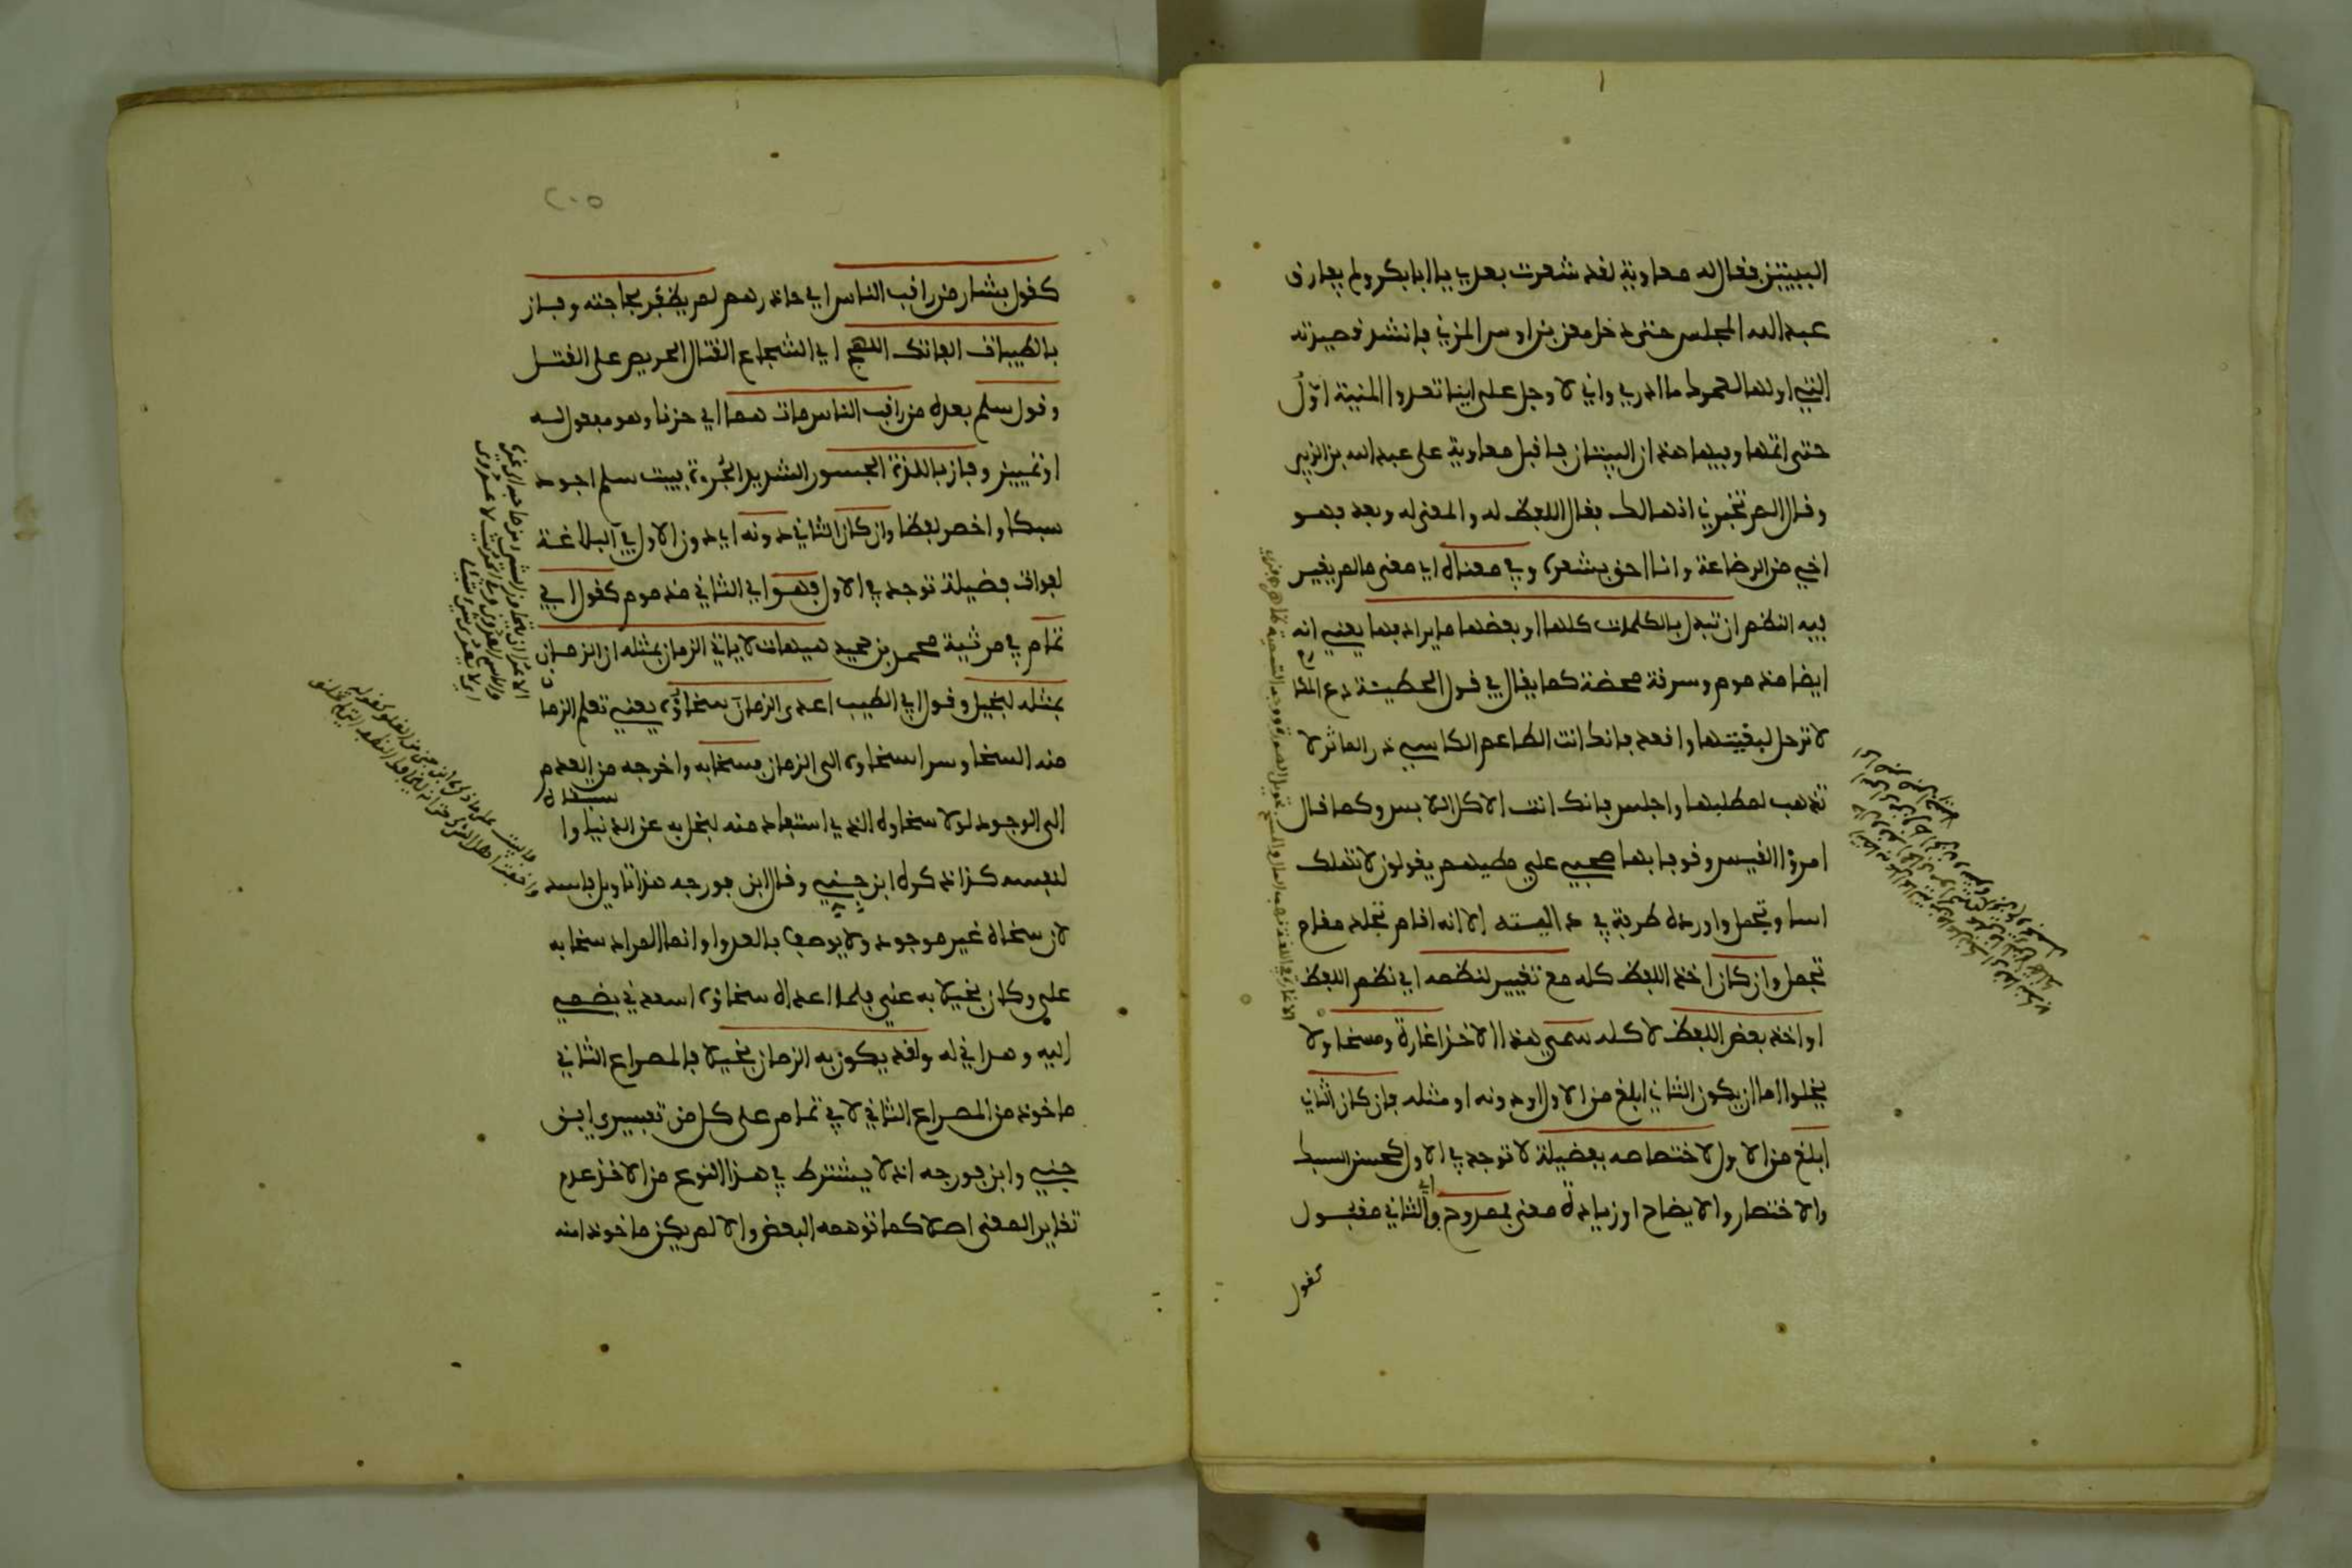 البيتين فقال له معاوية لقد شعرت بعدي يا ابا بكر ولم يفارق
عبد الله المجلس حتى دخل معن بن اوس المزني فانشد قصيدته
التي اولها لعمرك ما ادري واني لا وجل على اينا تعدوا المنية اوّل
حتى اتمها وفيها هذان البيتان فاقبل معاوية على عبد الله بن الزبير
وقال الم تخبرني انهما لك فقال اللفظ له والمعنى له وبعد فهو
اخي من الرضاعة وانا احق بشعره وفي معناه اي معنى ما لم يغير
فيه النظم ان تبدل بالكلمات كلها او بعضها ما يرادفها يعني انه
ايضا مذموم وسرقة محضة كما يقال في قول الحطيئة دع المكا
رم
لا ترحل لبغيتها واقعد فانك انت الطاعم الكاسي ذر المآثر لا
تذهب لمطلبها واجلس فانك انت الاكل اللابس وكما قال
امرؤ القيس وقوفا بها صحبي علي مطيهم يقولون لا تهلك
اسا وتجمل واورده طرفة في داليته الا انه اقام تجلد مقام
تجمل وان كان اخذ اللفظ كله مع تغيير لنظمه اي نظم اللفظ
او اخذ بعض اللفظ لا كله سمي هذا الاخذ اغارة ومسخا ولا
يخلوا اما ان يكون الثاني ابلغ من الاول او دونه او مثله فان كان الثاني
ابلغ من الاول لاختصاصه بفضيلة لا توجد في الاول كحسن السبك
والاختصار والايضاح او زيادة معنى فممدوح اي فالثاني مقبول
كقول
٢٠٥
كقول بشار من راقب الناس اي حاذرهم لم يظفر بحاجته وفاز
بالطيبات الفاتك اللهج اي الشجاع القتال الحريص على القتل
وقول سلم بعده من راقب الناس مات هما اي حزنا وهو مفعول له
او تمييز وفاز باللذة الجسور الشديد الجروة فبيت سلم اجود
سبكا واخصر لفظا وان كان الثاني دونه اي دون الاول في البلاغة
لفوات فضيلة توجد في الاول فهو اي الثاني مذموم كقول ابي
تمام في مرثية محمد بن حميد هيهات لا ياتي الزمان بمثله ان الزمان
بمثله لبخيل وقول ابي الطيب اعدى الزمان سخاؤه يعني تعلم الزما
ن
منه السخا وسرا سخاوه الى الزمان فسخا به واخرجه من العدم
الى الوجود لولا سخاوه الذي استفاد منه لبخل به عن الدنيا وا
ستبقاه
لنفسه كذا ذكره ابن جني وقال ابن فورجه هذا تاويل فاسد
لان سخاه غير موجود ولا يوصف بالعدوا وانما المراد سخا به
علي وكان بخيلا به عني فلما اعداه سخاؤه اسعدني بضمي
اليه وهداني له ولقد يكون به الزمان بخيلا فالمصراع الثاني
ماخوذ من المصراع الثاني لابي تمام على كل من تفسيري ابن
جني وابن فورجه اذ لا يشترط في هذا النوع من الاخذ عدم
تغاير المعنى اصلا كما توهمه البعض والا لم يكن ماخوذا منه